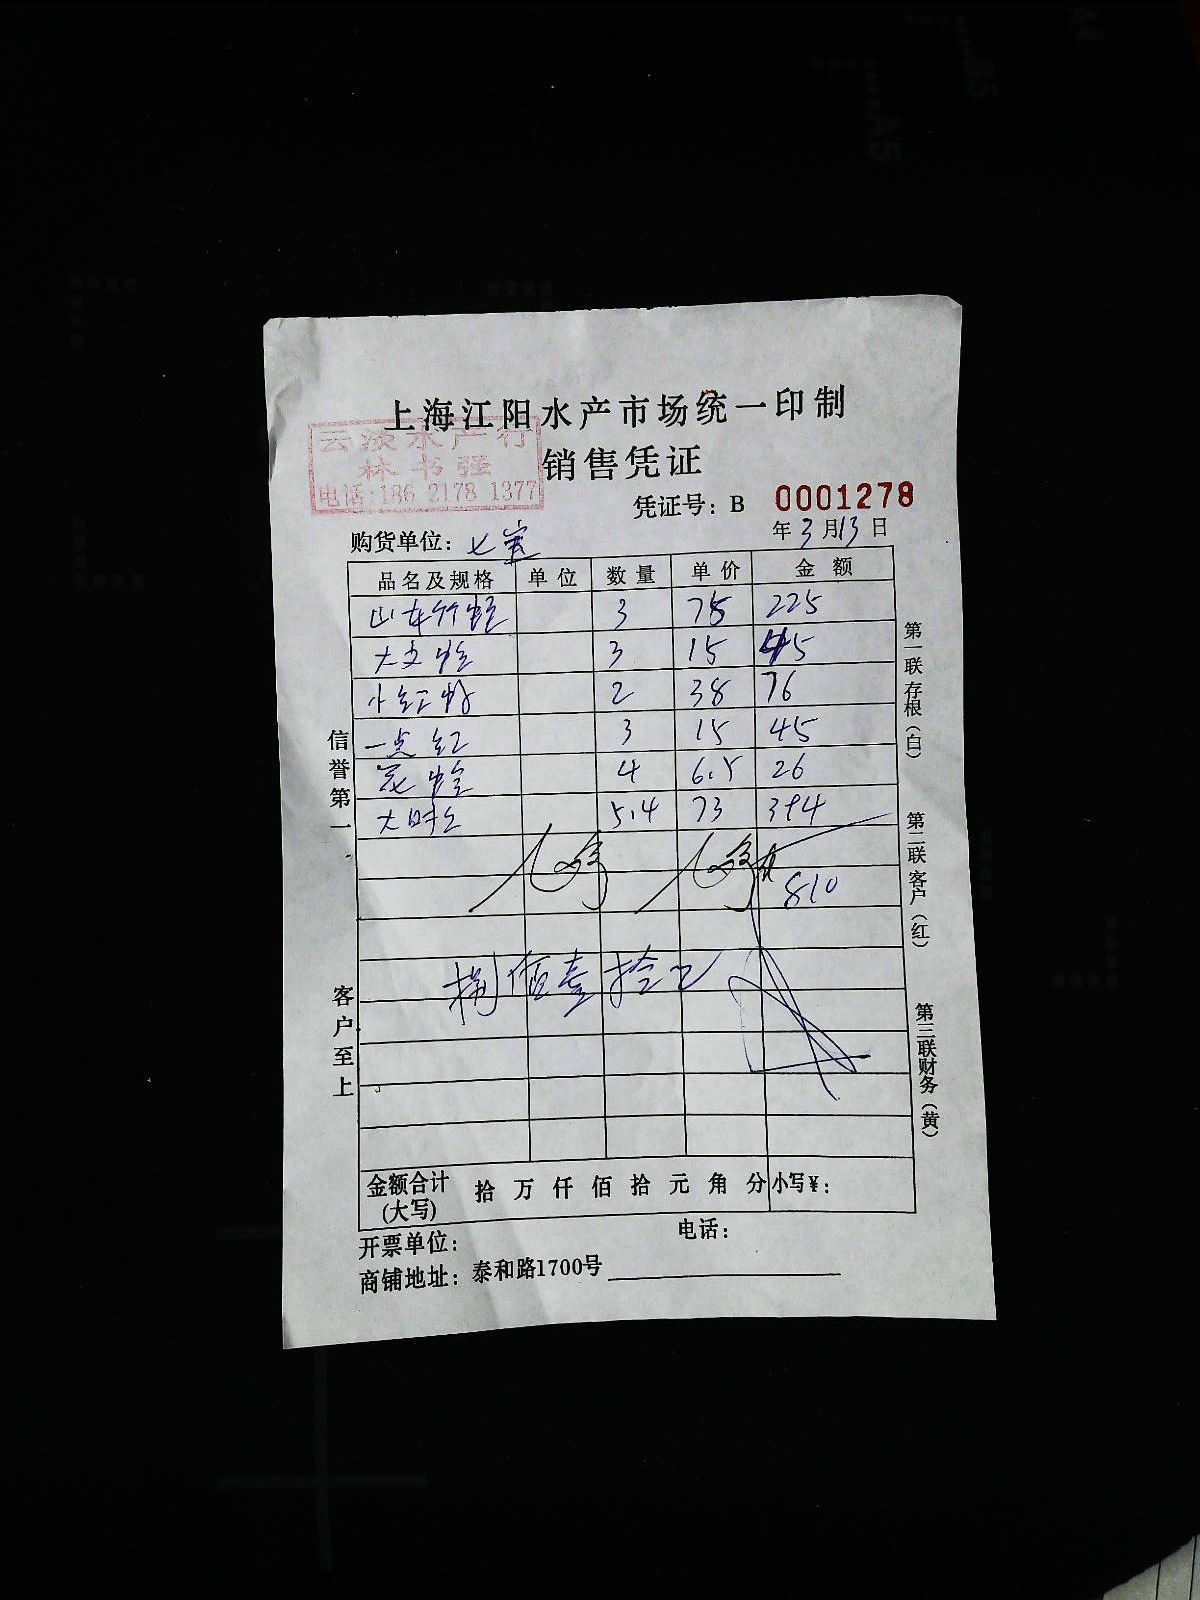 上海江阳水产市场统一印制
云淡水产行
林书强
电话:186 2178 1377
销售凭证
凭证号：B 0001278
购货单位：七宝 年3月13日
品名及规格 单位 数量 单价 金额
山东竹蛏 3 75 225
大文蛤 3 15 45
小红 2 38 76
一点红 3 15 45
花蛤 4 6.5 26
大 5.4 73 394
810
捌佰壹拾元
金额合计(大写) 拾 万 仟 佰 拾 元 角 分 小写¥：
开票单位： 电话：
商铺地址：泰和路1700号
信誉第一
客户至上
第一联存根（白）
第二联客户（红）
第三联财务（黄）
A4
B5
A5